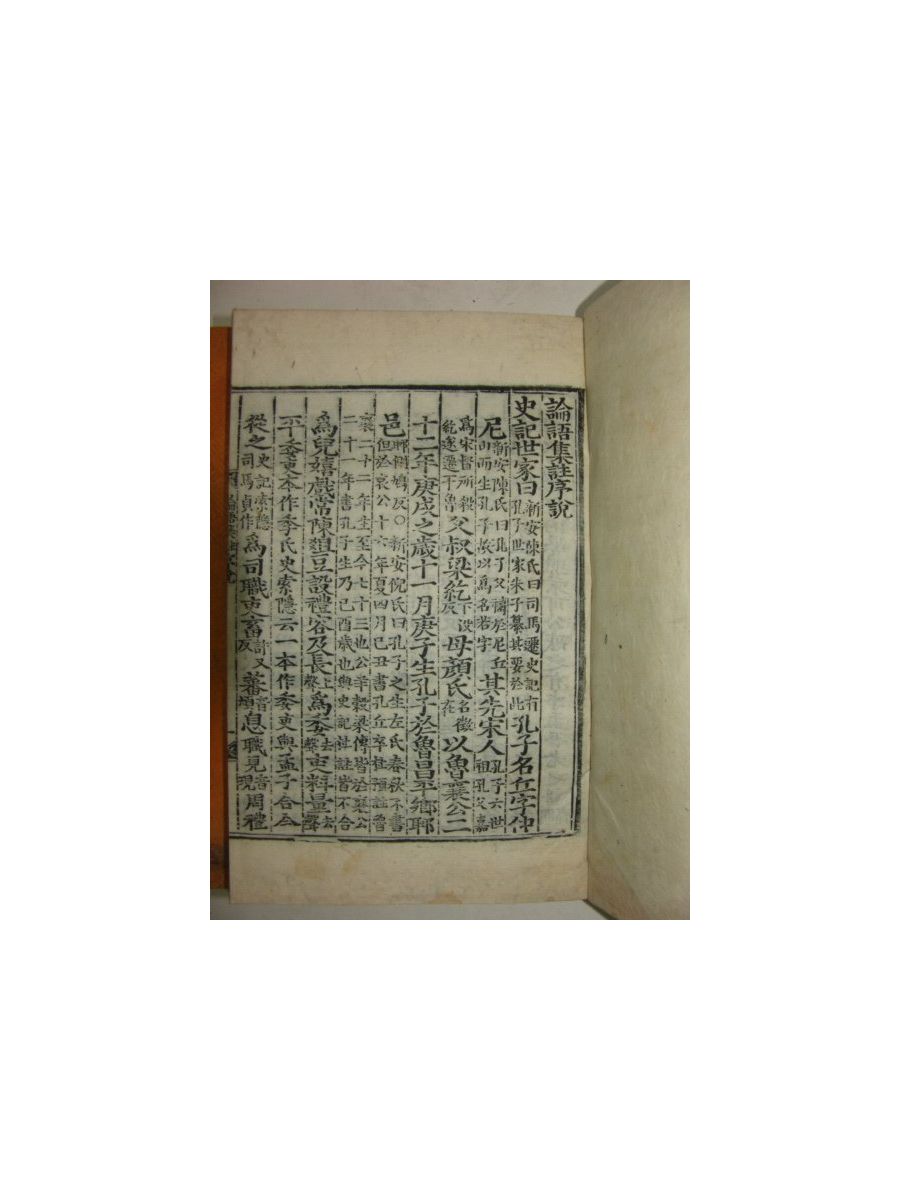 論語集註序說
史記世家曰新安陳氏曰司馬遷史記有孔子世家朱子纂其要於此孔子名丘字仲
尼新安陳氏曰孔子父禱於尼丘山而生孔子故以爲名若字其先宋人孔子六世祖孔父嘉
爲宋督所殺紇遂遷于魯父叔梁紇下沒反母顏氏名徵在以魯襄公二
十二年庚戌之歲十一月庚子生孔子於魯昌平鄉陬
邑陬側鳩反○新安倪氏曰孔子之生左氏春秋不書但於哀公十六年夏四月己丑書孔丘卒杜預註魯
襄二十二年生至今七十三也公羊穀梁傳皆於襄公二十一年書孔子生乃己酉歲也與史記杜註皆不合
爲兒嬉戲常陳俎豆設禮容及長上聲爲委去聲吏料量去聲
平委吏本作季氏史索隱云一本作委吏與孟子合今
從之史記索隱司馬貞作爲司職吏畜許又反蕃音煩息職見音現周禮